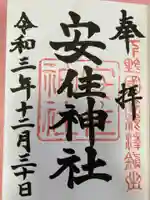 奉拝
安住神社
令和三年十二月三十日